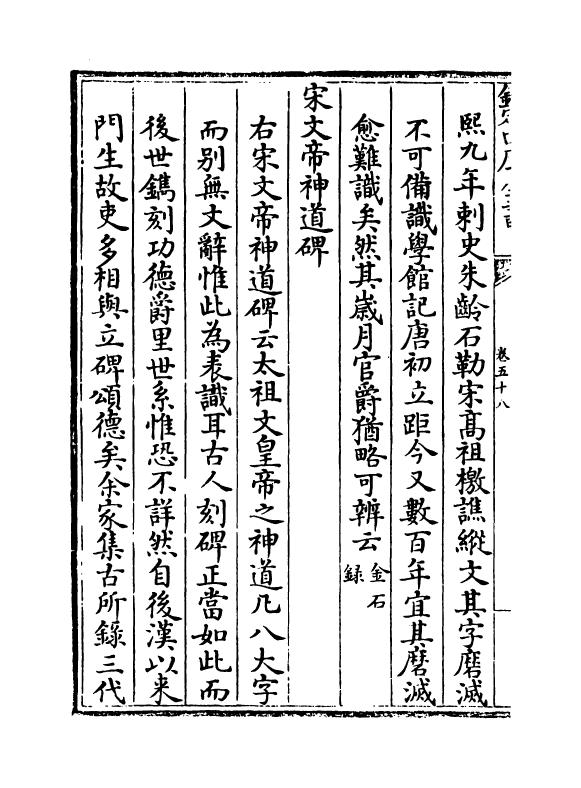 卷五十八
熙九年刺史朱齡石勒宋髙祖檄譙縱文其字磨滅
不可備識學館記唐初立距今又數百年宜其磨滅
愈難識矣然其歲月官爵猶略可辨云金石
録
宋文帝神道碑
右宋文帝神道碑云太祖文皇帝之神道凡八大字
而别無文辭惟此為表識耳古人刻碑正當如此而
後世鐫刻功德爵里世系惟恐不詳然自後漢以来
門生故吏多相與立碑頌德矣余家集古所錄三代